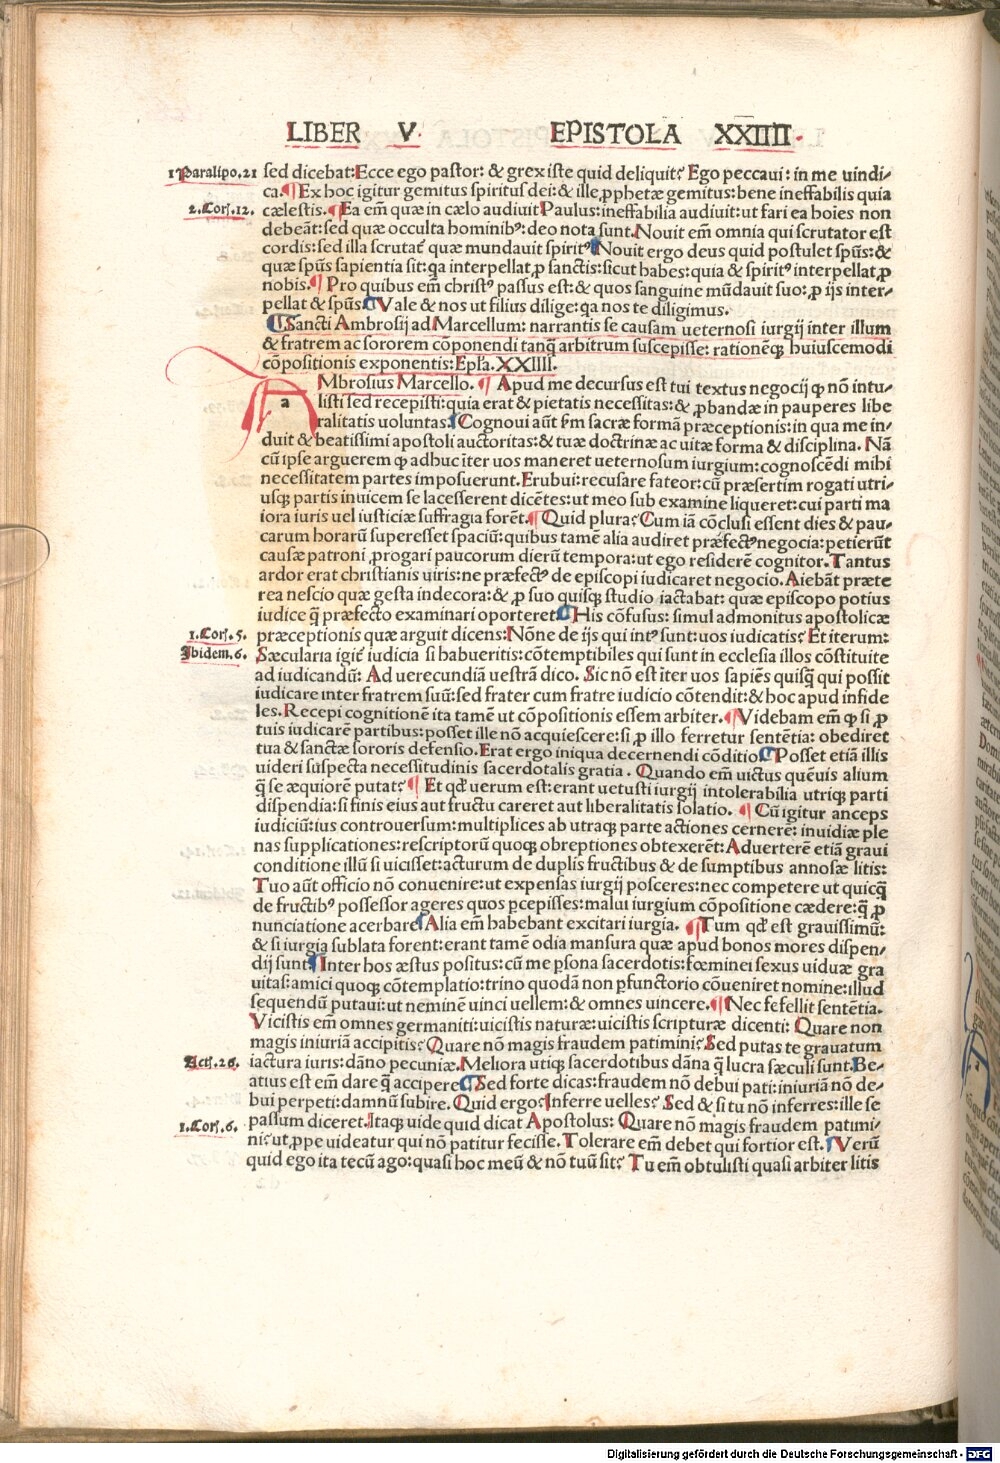 LIBER V. EPISTOLA XXIIII.
1 Paralipo. 21
sed dicebat: Ecce ego pastor: & grex iste quid deliquit? Ego peccaui: in me uindi⸗
ca. ¶ Ex hoc igitur gemitus spiritus dei: & ille ꝓphetæ gemitus: bene ineffabilis quia
2. Corĩ. 12.
cælestis. ¶ Ea em̃ quæ in cælo audiuit Paulus: ineffabilia audiuit: ut fari ea hoĩes non
debeãt: sed quæ occulta hominibꝰ: deo nota sunt. Nouit em̃ omnia qui scrutator est
cordis: sed illa scrutat̃ quæ mundauit spiritꝰ. Nouit ergo deus quid postulet sp̃us: &
quæ sp̃us sapientia sit: q̃a interpellat ꝓ sanctis: sicut habes: quia & spiritꝰ interpellat ꝓ
nobis. ¶ Pro quibus em̃ christꝰ passus est: & quos sanguine mũdauit suo: ꝓ ijs inter⸗
pellat & sp̃us. ¶ Vale & nos ut filius dilige: q̃a nos te diligimus.
¶ Sancti Ambrosij ad Marcellum: narrantis se causam ueternosi iurgij inter illum
& fratrem ac sororem cõponendi tanq̃ arbitrum suscepisse: rationẽq; huiuscemodi
cõpositionis exponentis: Epl̃a. XXIIII.
a
Mbrosius Marcello. ¶ Apud me decursus est tui textus negocij ꝙ nõ intu⸗
listi sed recepisti: quia erat & pietatis necessitas: & ꝓbandæ in pauperes libe
ralitatis uoluntas. ¶ Cognoui aũt f̃m sacræ formã præceptionis: in qua me in⸗
duit & beatissimi apostoli auctoritas: & tuæ doctrinæ ac uitæ forma & disciplina. Nã
cũ ipse arguerem ꝙ adhuc iter uos maneret ueternosum iurgium: cognoscẽdi mihi
necessitatem partes imposuerunt. Erubui: recusare fateor: cũ præsertim rogati utri⸗
usq; partis inuicem se lacesserent dicẽtes: ut meo sub examine liqueret: cui parti ma
iora iuris uel iusticiæ suffragia forẽt. ¶ Quid plura? Cum iã cõclusi essent dies & pau⸗
carum horarũ superesset spaciũ: quibus tamẽ alia audiret præfectꝰ negocia: petierũt
causæ patroni ꝓrogari paucorum dierũ tempora: ut ego residerẽ cognitor. Tantus
ardor erat christianis uiris: ne præfectꝰ de episcopi iudicaret negocio. Aiebãt præte
rea nescio quæ gesta indecora: & ꝓ suo quisq; studio iactabat: quæ episcopo potius
iudice q̃ præfecto examinari oporteret. ¶ His cõfusus: simul admonitus apostolicæ
1. Corĩ. 5.
præceptionis quæ arguit dicens: Nõne de ijs qui intꝰ sunt: uos iudicatis? Et iterum:
Ibidem. 6.
Sæcularia igit̃ iudicia si habueritis: cõtemptibiles qui sunt in ecclesia illos cõstituite
ad iudicandũ: Ad uerecundiã uestrã dico. Sic nõ est iter uos sapiẽs quisq̃ qui possit
iudicare inter fratrem suũ: sed frater cum fratre iudicio cõtendit: & hoc apud infide
les. Recepi cognitionẽ ita tamẽ ut cõpositionis essem arbiter. ¶ Videbam em̃ ꝙ si ꝓ
tuis iudicarẽ partibus: posset ille nõ acquiescere: si ꝓ illo ferretur sentẽtia: obediret
tua & sanctæ sororis defensio. Erat ergo iniqua decernendi cõditio. ¶ Posset etiã illis
uideri suspecta necessitudinis sacerdotalis gratia. Quando em̃ uictus quẽuis alium
q̃ se æquiorẽ putat? ¶ Et qđ uerum est: erant uetusti iurgij intolerabilia utriq; parti
dispendia: si finis eius aut fructu careret aut liberalitatis solatio. ¶ Cũ igitur anceps
iudiciũ: ius controuersum: multiplices ab utraq; parte actiones cernerẽ: inuidiæ ple
nas supplicationes: rescriptorũ quoq; obreptiones obtexerẽt: Aduerterẽ etiã graui
conditione illũ si uicisset: acturum de duplis fructibus & de sumptibus annosæ litis:
Tuo aũt officio nõ conuenire: ut expensas iurgij posceres: nec competere ut quicq̃
de fructibꝰ possessor ageres quos ꝑcepisses: malui iurgium cõpositione cædere: q̃ ꝓ
nunciatione acerbare. ¶ Alia em̃ habebant excitari iurgia. ¶ Tum qđ est grauissimũ:
& si iurgia sublata forent: erant tamẽ odia mansura quæ apud bonos mores dispen⸗
dij sunt. ¶ Inter hos æstus positus: cũ me ꝑsona sacerdotis: fœminei sexus uiduæ gra
uitas: amici quoq; cõtemplatio: trino quodã non ꝑfunctorio cõueniret nomine: illud
sequendũ putaui: ut neminẽ uinci uellem: & omnes uincere. ¶ Nec fefellit sentẽtia.
Vicistis em̃ omnes germaniti: uicistis naturæ: uicistis scripturæ dicenti: Quare non
magis iniuriã accipitis? Quare nõ magis fraudem patimini? Sed putas te grauatum
Act̃. 20.
iactura iuris: dãno pecuniæ. Meliora utiq; sacerdotibus dãna q̃ lucra sæculi sunt. Be⸗
atius est em̃ dare q̃ accipere. ¶ Sed forte dicas: fraudem nõ debui pati: iniuriã nõ de⸗
bui perpeti: damnũ subire. Quid ergo? Inferre uelles? Sed & si tu nõ inferres: ille se
passum diceret. Itaq; uide quid dicat Apostolus: Quare nõ magis fraudem patimi⸗
1. Corĩ. 6.
ni? ut ꝓpe uideatur qui nõ patitur fecisse. Tolerare em̃ debet qui fortior est. ¶ Verũ
quid ego ita tecũ ago: quasi hoc meũ & nõ tuũ sit? Tu em̃ obtulisti quasi arbiter litis
Digitalisierung gefördert durch die Deutsche Forschungsgemeinschaft - DFG